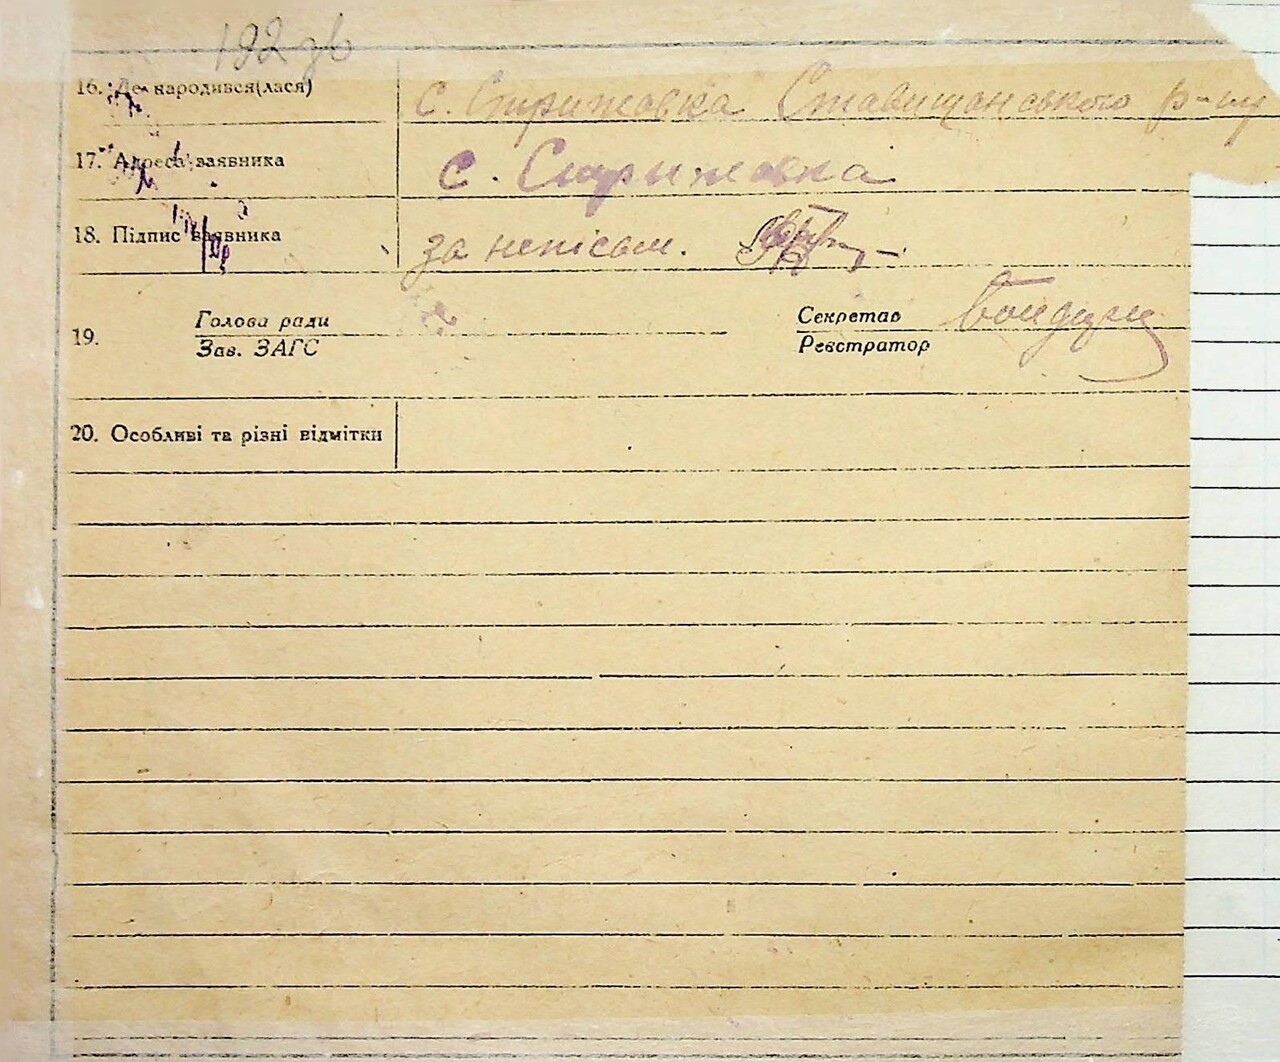 192 зв
16. Де народився(лася) с. Стрижовка Ставищанського р-ну
17. Адреса заявника с. Стрижовка
18. Підпис заявника за непісьм.
19. Голова ради Секретар
Зав. ЗАГС Реєстратор
20. Особливі та різні відмітки